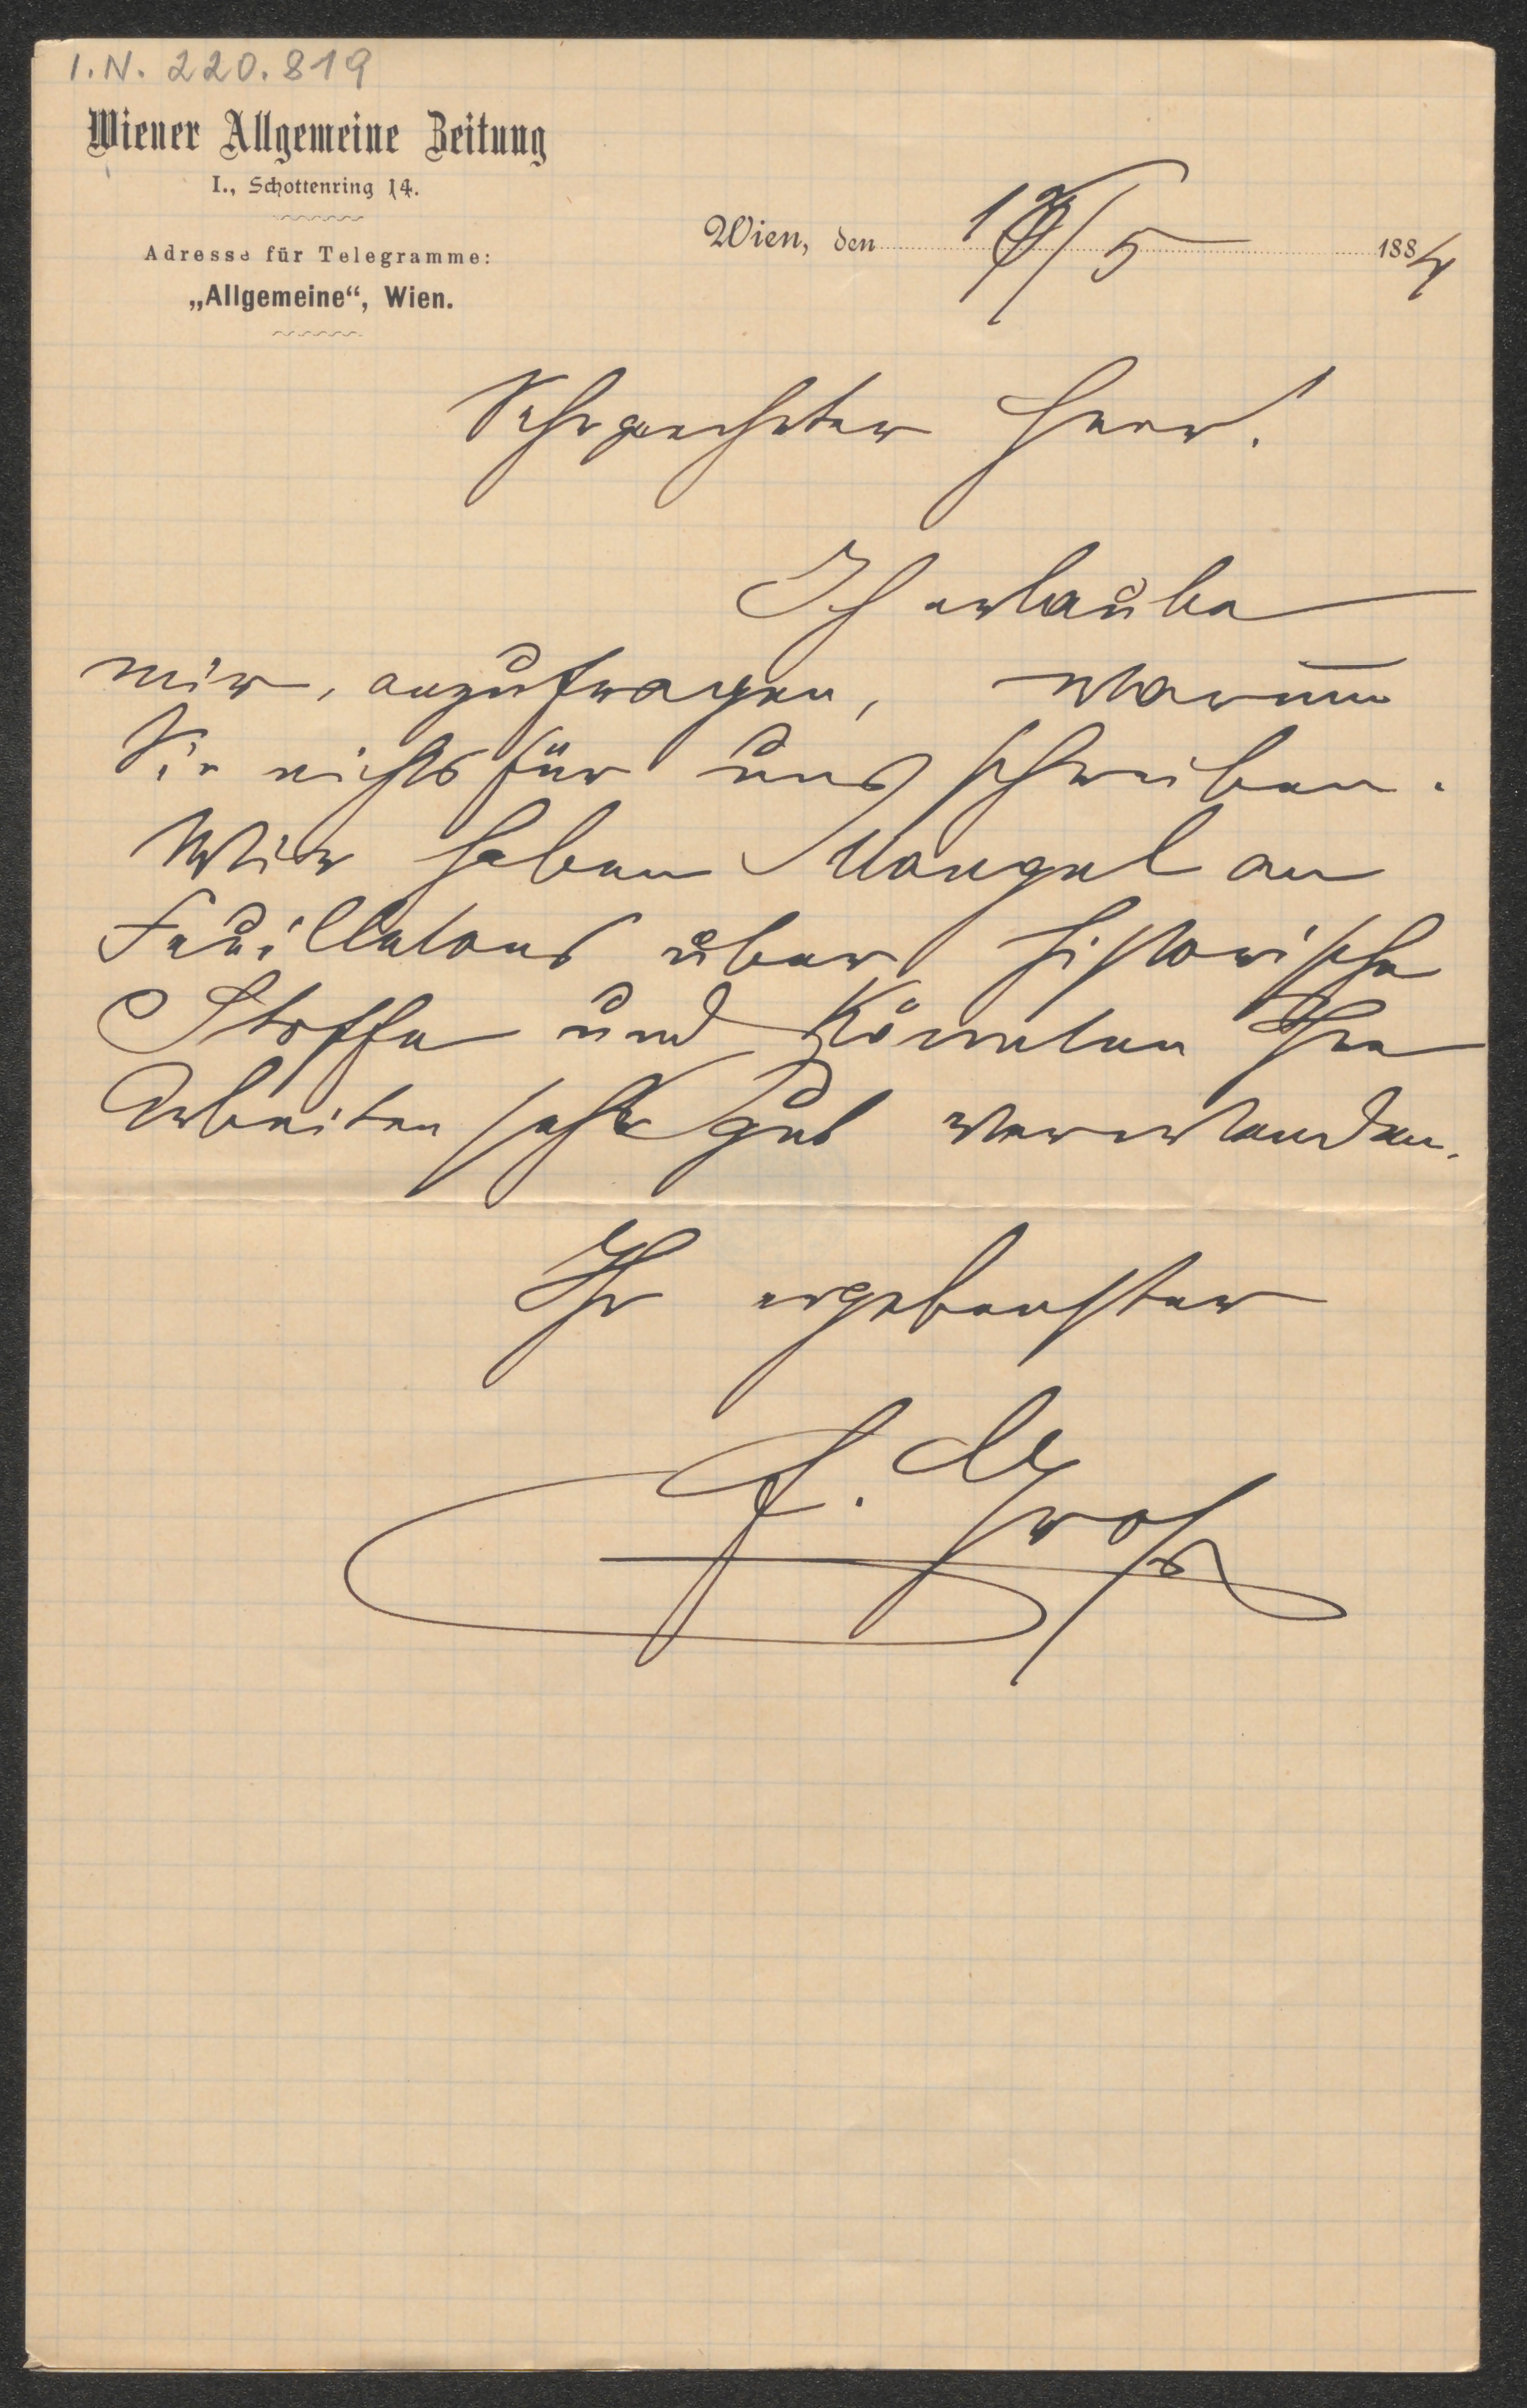 I.N. 220.819
Wiener Allgemeine Zeitung
I., Schottenring 14.
Adresse für Telegramme:
„Allgemeine“, Wien.
Wien, den /5 1884
Sehrgeehrter Herr!
Ich erlaube
mir, anzufragen, warum̅
Sie nichts für uns schreiben.
Wir haben Mangel an
Feuilletons über historische
Stoffe und könnten Ihre
Arbeiten sehr gut verwenden.
Ihr ergebenster
F. Groß